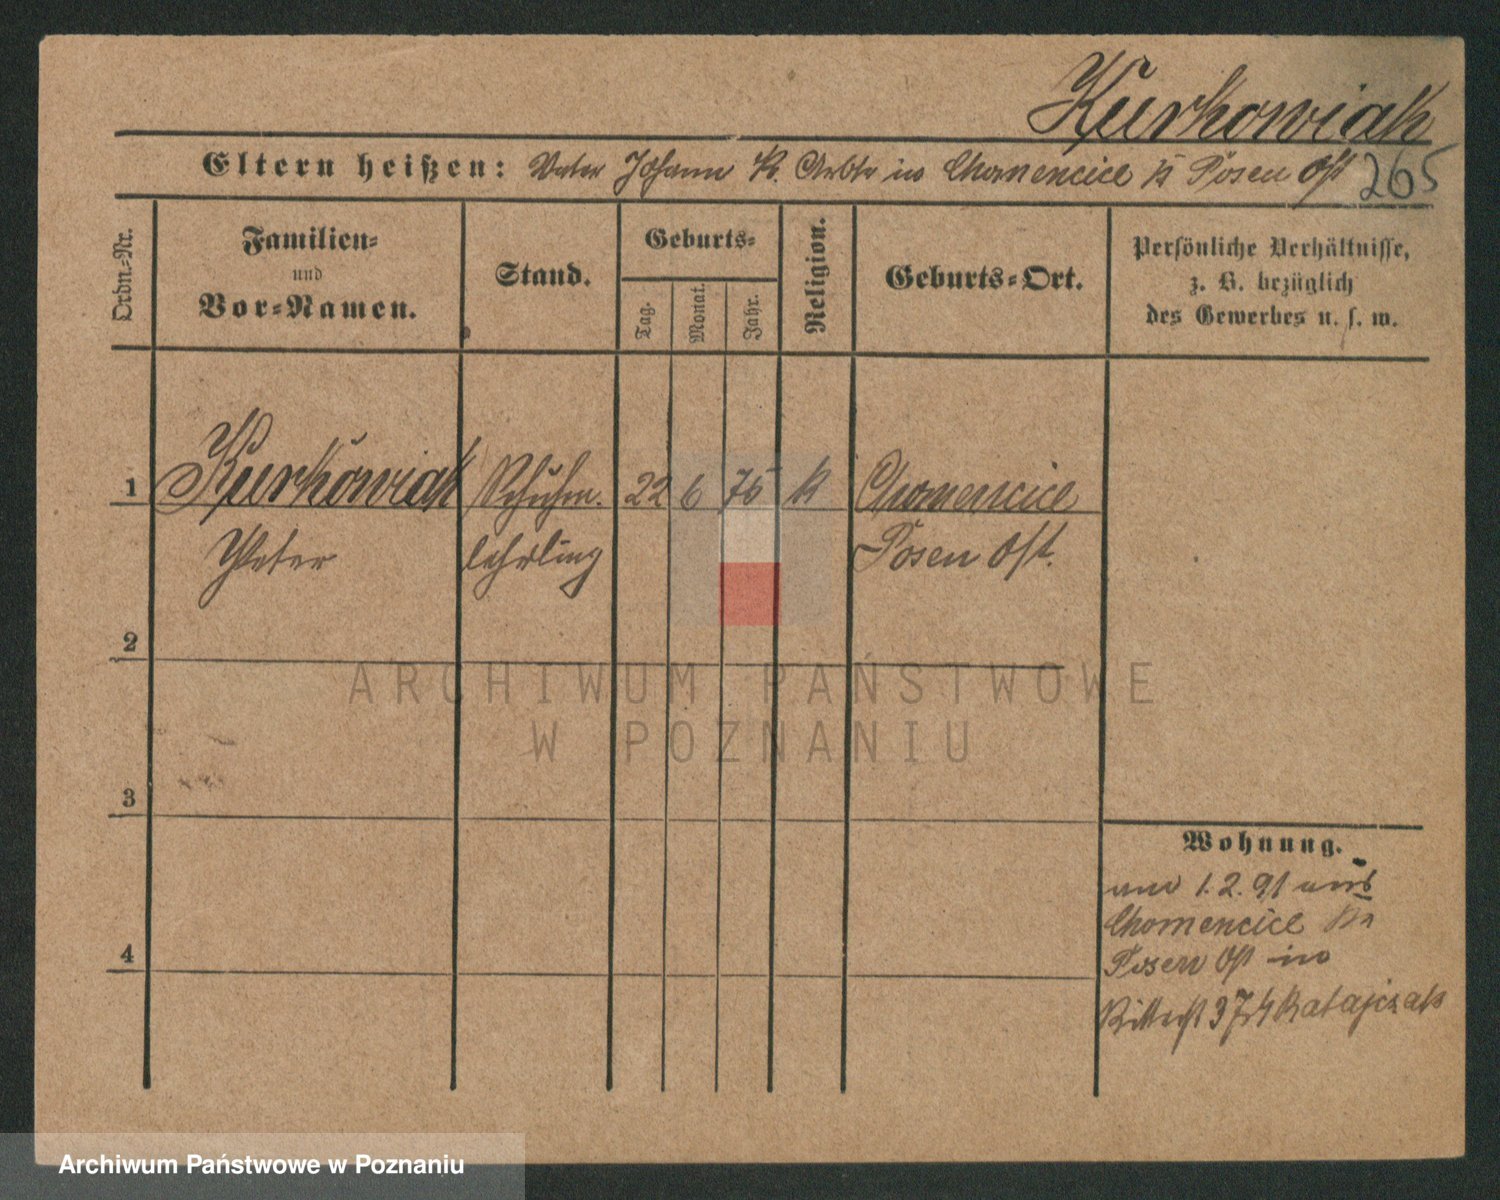 Kurkowiak
265
Eltern heißen: Vater Johann K. Arbtr in Chomencice Kr Posen Ost
Ordn.-Nr.
Familien-
und
Vor-Namen.
Stand.
Geburts-
Tag.
Monat.
Jahr.
Religion.
Geburts-Ort.
Persönliche Verhältnisse,
z. B. bezüglich
des Gewerbes u. s. w.
1 Kurkowiak Schuhm. 22 6 75 k Chomencice
Peter lehrling Posen Ost.
2
ARCHIWUM PAŃSTWOWE
W POZNANIU
3
Wohnung.
1.2.91 aus
Chomencice Kr
4
Posen Ost in
Ritterst 37 Ratajczak
Archiwum Państwowe w Poznaniu